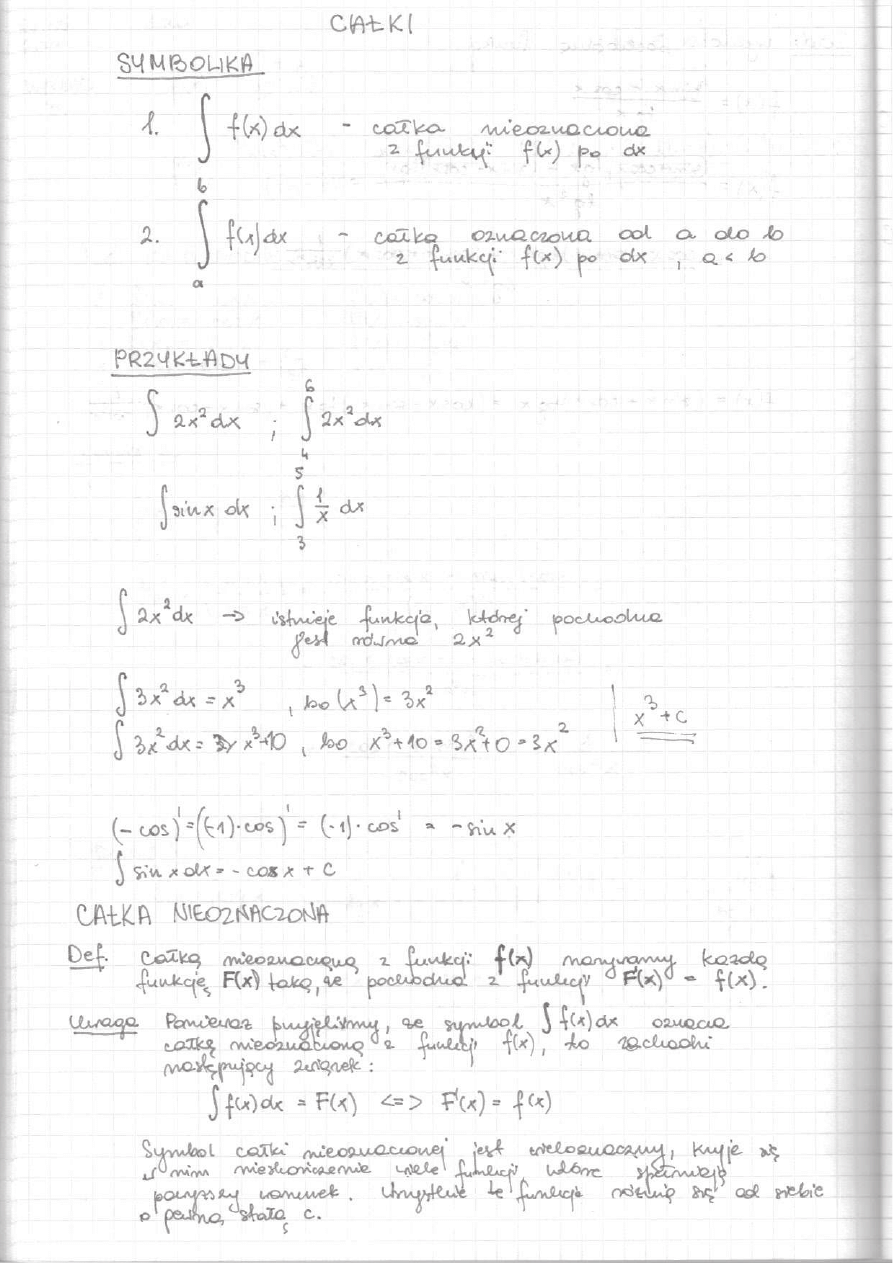 CAŁKI
SYMBOLIKA
1. ∫ f(x) dx - całka nieoznaczona
z funkcji f(x) po dx
2. ∫ₐᵇ f(x) dx - całka oznaczona od a do b
z funkcji f(x) po dx , a < b
PRZYKŁADY
∫ 2x² dx ; ∫₄⁶ 2x² dx
∫ sin x dx ; ∫₃⁵ 1/x dx
∫ 2x² dx → istnieje funkcja, której pochodna
jest równa 2x²
∫ 3x² dx = x³ , bo (x³) = 3x² | x³ + c
∫ 3x² dx = x³+10 , bo x³+10 = 3x²+0 = 3x²
(-cos)' = ((-1)·cos)' = (-1)·cos' = -sin x
∫ sin x dx = - cos x + C
CAŁKA NIEOZNACZONA
Def. Całką nieoznaczoną z funkcji f(x) nazywamy każdą
funkcję F(x) taką, że pochodna z funkcji F'(x) = f(x).
Uwaga Ponieważ przyjęliśmy, że symbol ∫ f(x) dx oznacza
całkę nieoznaczoną z funkcji f(x), to zachodzi
następujący związek:
∫ f(x) dx = F(x) <=> F'(x) = f(x)
Symbol całki nieoznaczonej jest wieloznaczny, kryje się
w nim nieskończenie wiele funkcji które spełniają
powyższy warunek. Wszystkie te funkcje różnią się od siebie
o pewną stałą c.